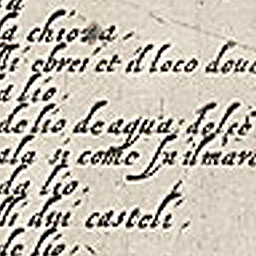 a chioza.
lli ebrei et il loco doue
a lio.
de lio de agua dolce
ala si come fu il mar
da lio.
lli dui casteli.
de lio.